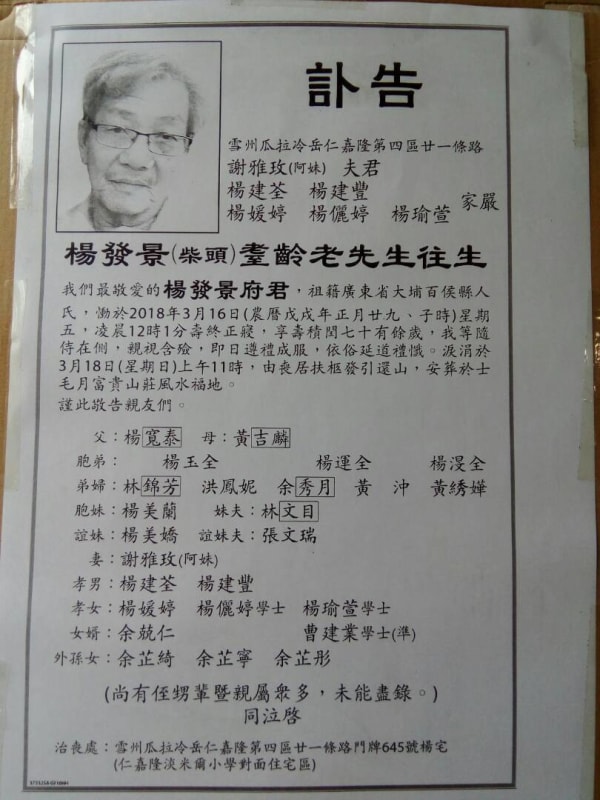 訃告
雪州瓜拉冷岳仁嘉隆第四區廿一條路
謝雅玫(阿妹) 夫君
楊建荃 楊建豐
家嚴
楊媛婷 楊儷婷 楊瑜萱
楊發景(柴頭)耋齡老先生往生
我們最敬愛的楊發景府君，祖籍廣東省大埔百侯縣人
氏，慟於2018年3月16日(農曆戊戌年正月廿九、子時)星期
五，凌晨12時1分壽終正寢，享壽積閏七十有餘歲，我等隨
侍在側，親視含殮，即日遵禮成服，依俗延道禮懺。淚涓於
3月18日(星期日)上午11時，由喪居扶柩發引還山，安葬於士
毛月富貴山莊風水福地。
謹此敬告親友們。
父：楊寬泰 母：黃吉麟
胞弟： 楊玉全 楊運全 楊浸全
弟婦：林錦芳 洪鳳妮 余秀月 黃 沖 黃綉嬅
胞妹：楊美蘭 妹夫：林文目
誼妹：楊美嬌 誼妹夫：張文瑞
妻：謝雅玫(阿妹)
孝男：楊建荃 楊建豐
孝女：楊媛婷 楊儷婷學士 楊瑜萱學士
女婿：余兢仁 曹建業學士(準)
外孫女：余芷綺 余芷寧 余芷彤
(尚有侄甥輩暨親屬眾多，未能盡錄。)
同泣啓
治喪處：雪州瓜拉冷岳仁嘉隆第四區廿一條路門牌645號楊宅
(仁嘉隆淡米爾小學對面住宅區)